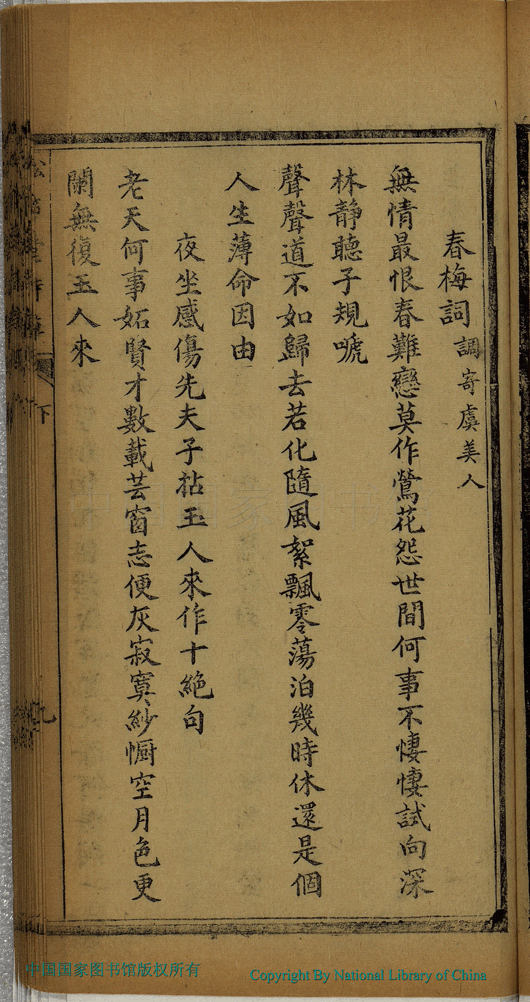 春梅詞調寄虞美人
無情最恨春難戀莫作鶯花怨世間何事不悽悽試向深
林静聽子規嗁
聲聲道不如歸去若化隨風絮飄零蕩泊幾時休還是個
人生薄命因由
夜坐感傷先夫子拈玉人來作十絶句
老天何事妬賢才數載芸窗志便灰寂寞紗㡡空月色更
闌無復玉人來
下
九
中国国家图书馆版权所有
Copyright By National Library of China